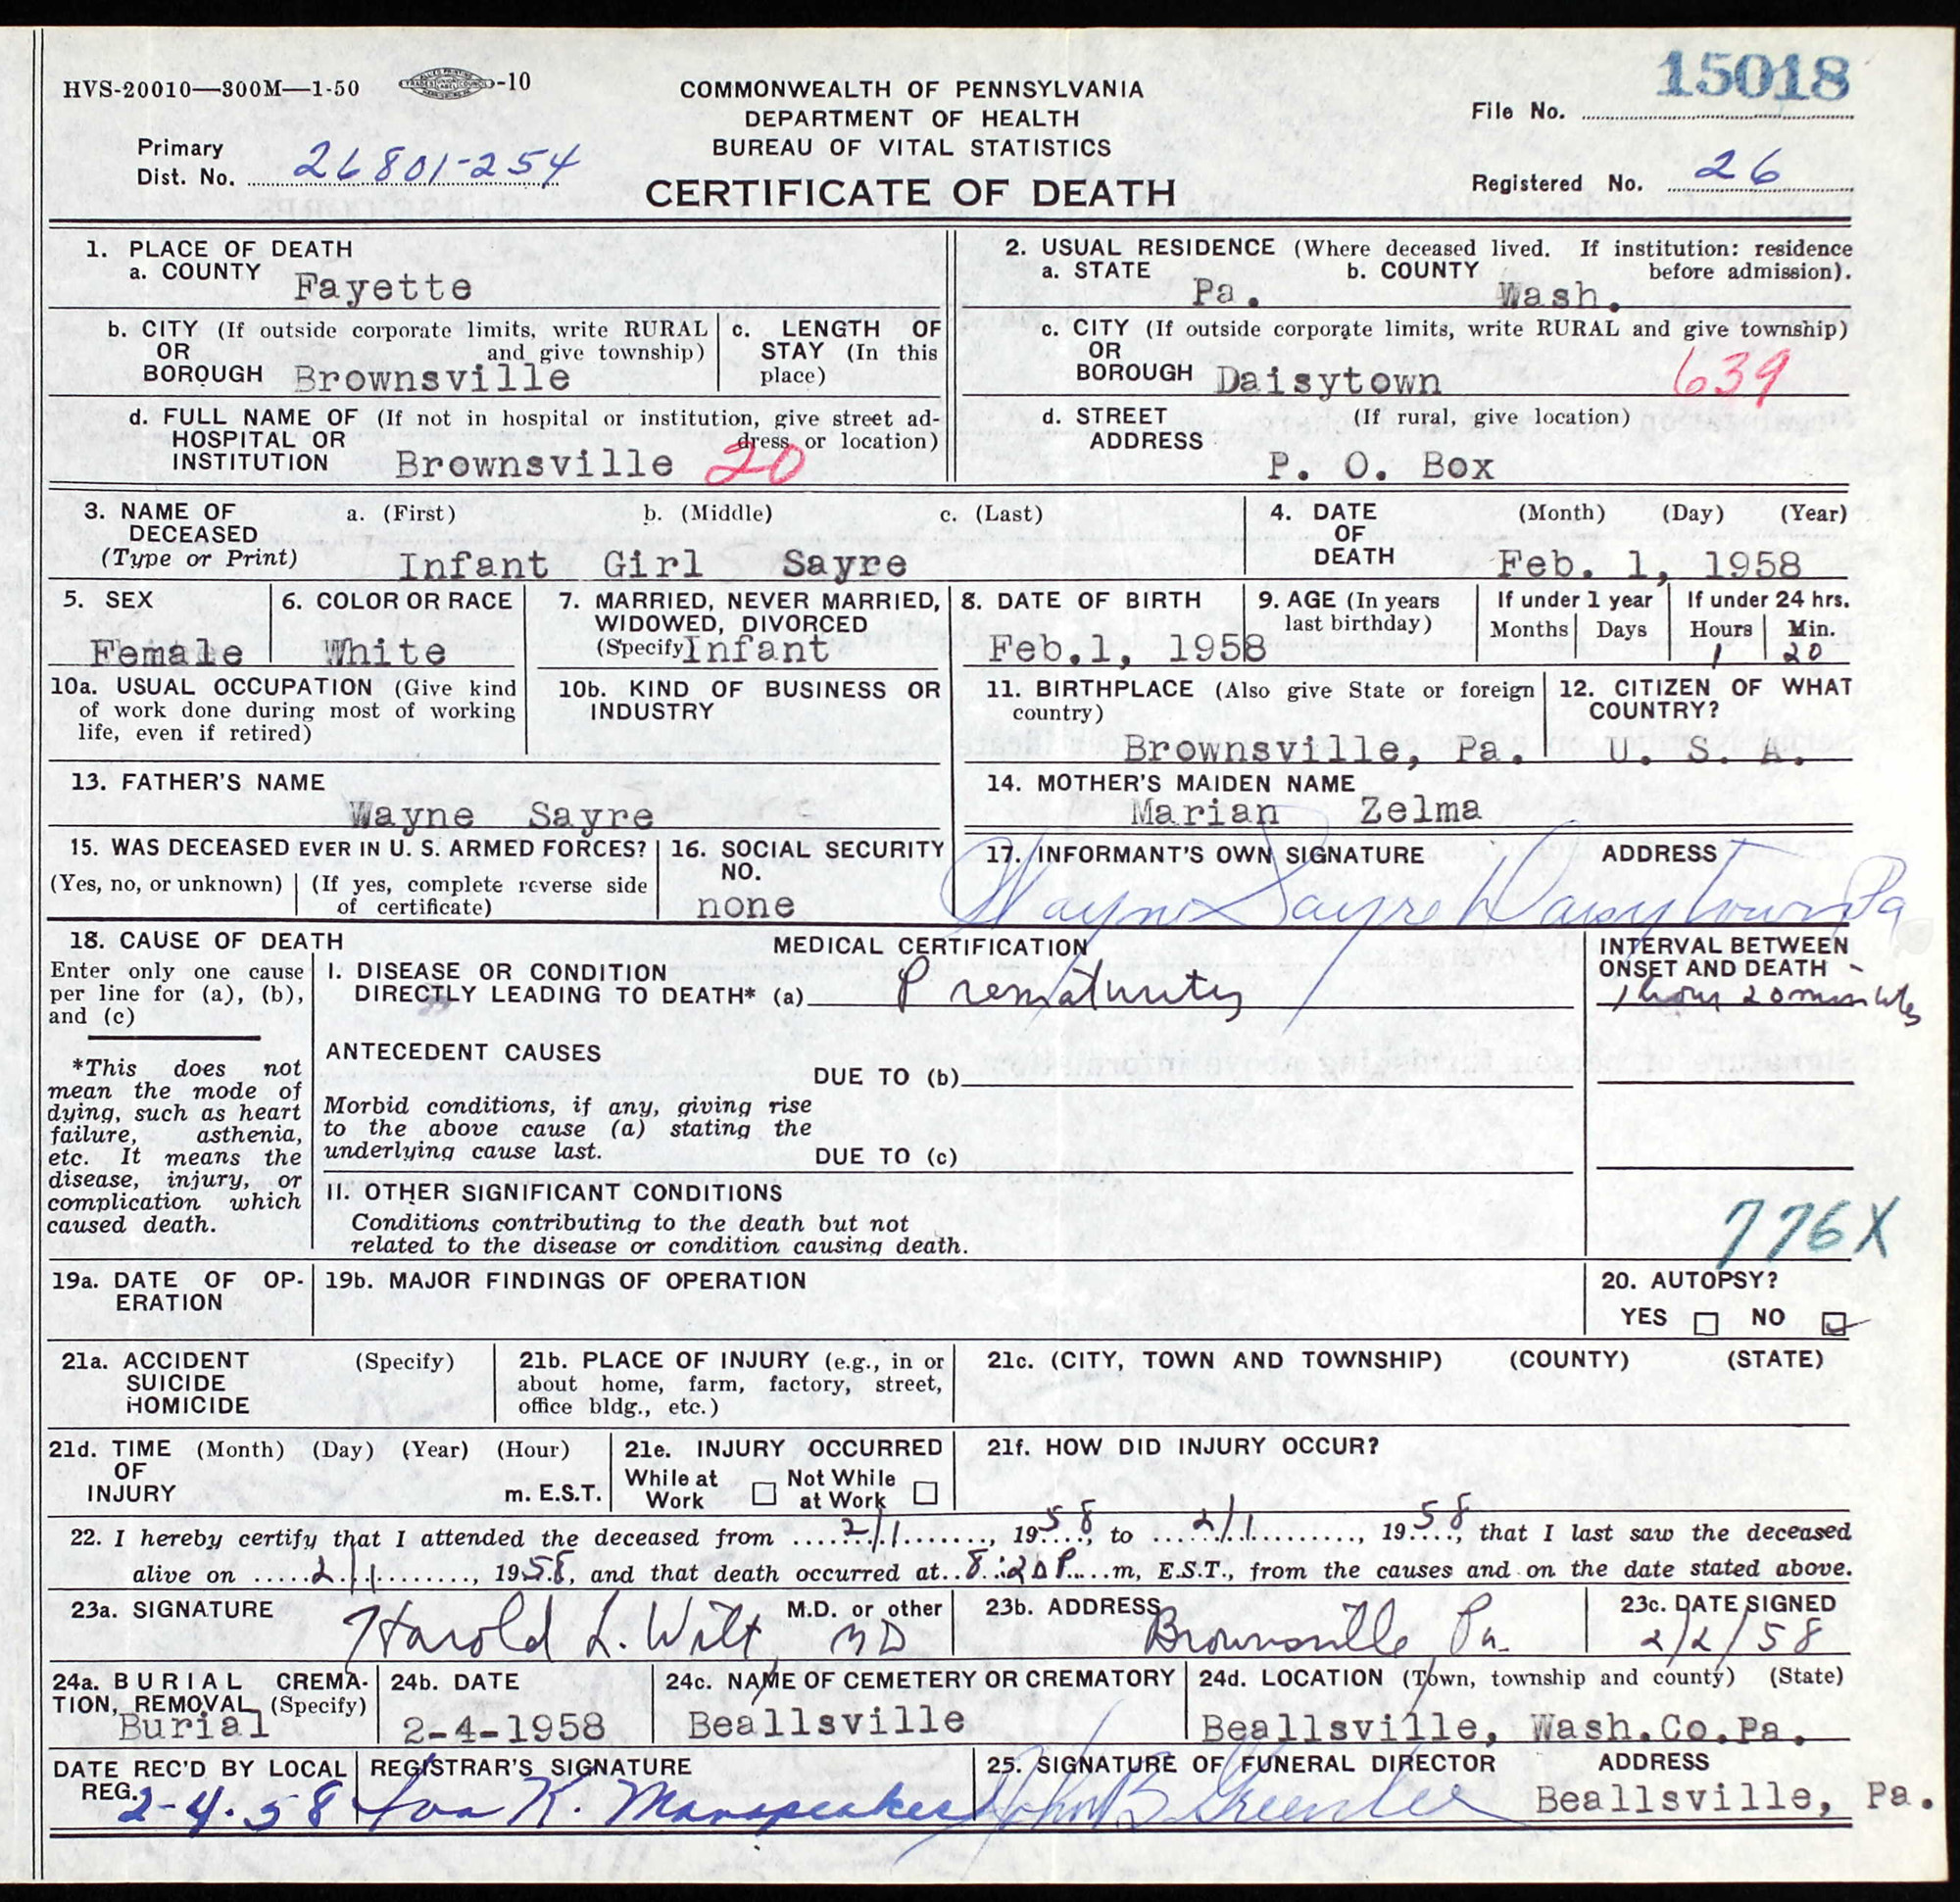 HVS-20010—300M—1-50 -10
COMMONWEALTH OF PENNSYLVANIA
DEPARTMENT OF HEALTH
BUREAU OF VITAL STATISTICS
CERTIFICATE OF DEATH
15018
File No.
Primary
Dist. No. 26801-254
Registered No. 26
1. PLACE OF DEATH
a. COUNTY Fayette
b. CITY (If outside corporate limits, write RURAL
OR and give township)
BOROUGH Brownsville
c. LENGTH OF
STAY (In this
place)
d. FULL NAME OF (If not in hospital or institution, give street ad-
HOSPITAL OR dress or location)
INSTITUTION Brownsville 20
2. USUAL RESIDENCE (Where deceased lived. If institution: residence
a. STATE b. COUNTY before admission).
Pa. Wash.
c. CITY (If outside corporate limits, write RURAL and give township)
OR
BOROUGH Daisytown 639
d. STREET (If rural, give location)
ADDRESS
P. O. Box
3. NAME OF a. (First) b. (Middle) c. (Last)
DECEASED
(Type or Print) Infant Girl Sayre
4. DATE (Month) (Day) (Year)
OF
DEATH Feb. 1, 1958
5. SEX
Female
6. COLOR OR RACE
White
7. MARRIED, NEVER MARRIED,
WIDOWED, DIVORCED
(Specify Infant
8. DATE OF BIRTH
Feb.1, 1958
9. AGE (In years
last birthday)
If under 1 year
Months Days
If under 24 hrs.
Hours Min.
1 20
10a. USUAL OCCUPATION (Give kind
of work done during most of working
life, even if retired)
10b. KIND OF BUSINESS OR
INDUSTRY
11. BIRTHPLACE (Also give State or foreign
country)
Brownsville, Pa.
12. CITIZEN OF WHAT
COUNTRY?
U. S. A.
13. FATHER'S NAME
Wayne Sayre
14. MOTHER'S MAIDEN NAME
Marian Zelma
15. WAS DECEASED EVER IN U. S. ARMED FORCES?
(Yes, no, or unknown) (If yes, complete reverse side
of certificate)
16. SOCIAL SECURITY
NO.
none
17. INFORMANT'S OWN SIGNATURE ADDRESS
Wayne Sayre Daisytown Pa
18. CAUSE OF DEATH
Enter only one cause
per line for (a), (b),
and (c)
*This does not
mean the mode of
dying, such as heart
failure, asthenia,
etc. It means the
disease, injury, or
complication which
caused death.
MEDICAL CERTIFICATION
I. DISEASE OR CONDITION
DIRECTLY LEADING TO DEATH* (a) Prematurity
ANTECEDENT CAUSES
DUE TO (b)
Morbid conditions, if any, giving rise
to the above cause (a) stating the
underlying cause last.
DUE TO (c)
II. OTHER SIGNIFICANT CONDITIONS
Conditions contributing to the death but not
related to the disease or condition causing death.
INTERVAL BETWEEN
ONSET AND DEATH
1 hour 20 minutes
776X
19a. DATE OF OP-
ERATION
19b. MAJOR FINDINGS OF OPERATION
20. AUTOPSY?
YES NO
21a. ACCIDENT (Specify)
SUICIDE
HOMICIDE
21b. PLACE OF INJURY (e.g., in or
about home, farm, factory, street,
office bldg., etc.)
21c. (CITY, TOWN AND TOWNSHIP) (COUNTY) (STATE)
21d. TIME (Month) (Day) (Year) (Hour)
OF
INJURY m. E.S.T.
21e. INJURY OCCURRED
While at Not While
Work at Work
21f. HOW DID INJURY OCCUR?
22. I hereby certify that I attended the deceased from 2/1, 1958, to 2/1, 1958, that I last saw the deceased
alive on 2/1, 1958, and that death occurred at 8:20 P.m, E.S.T., from the causes and on the date stated above.
23a. SIGNATURE M.D. or other
Harold L. Wilt MD
23b. ADDRESS
Brownsville Pa.
23c. DATE SIGNED
2/2/58
24a. BURIAL CREMA-
TION, REMOVAL (Specify)
Burial
24b. DATE
2-4-1958
24c. NAME OF CEMETERY OR CREMATORY
Beallsville
24d. LOCATION (Town, township and county) (State)
Beallsville, Wash.Co.Pa.
DATE REC'D BY LOCAL
REG. 2-4-58
REGISTRAR'S SIGNATURE
K.
25. SIGNATURE OF FUNERAL DIRECTOR ADDRESS
John B Greenlee Beallsville, Pa.